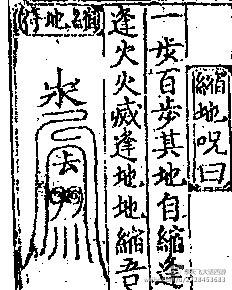 縮地咒曰
一步百步其地自縮逢
逢火火滅逢地地縮吾
縮地符
去